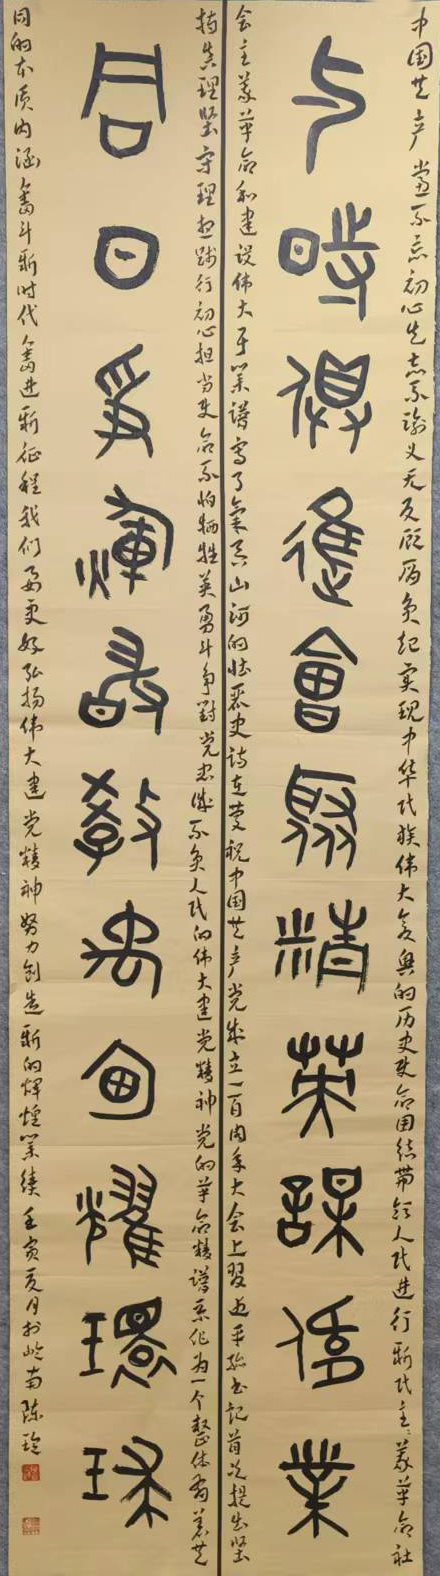 中国共产党不忘初心矢志不渝义无反顾肩负起实现中华民族伟大复興的历史使命团结带领人民进行新民主主義革命社
与時俱進會聚精英謀偉業
会主義革命和建设伟大事業谱写了氣吞山河的壮丽史诗在庆祝中国共产党成立一百周年大会上習近平总书记首次提出坚
持真理坚守理想践行初心担当使命不怕牺牲英勇斗争對党忠诚不负人民的伟大建党精神党的革命精谱系作为一个整体有着共
同日爭輝故教禹甸耀環球
同的本质内涵奋斗新时代奋进新征程我们要更好弘扬伟大建党精神努力创造新的辉煌業绩壬寅夏月於岭南陈